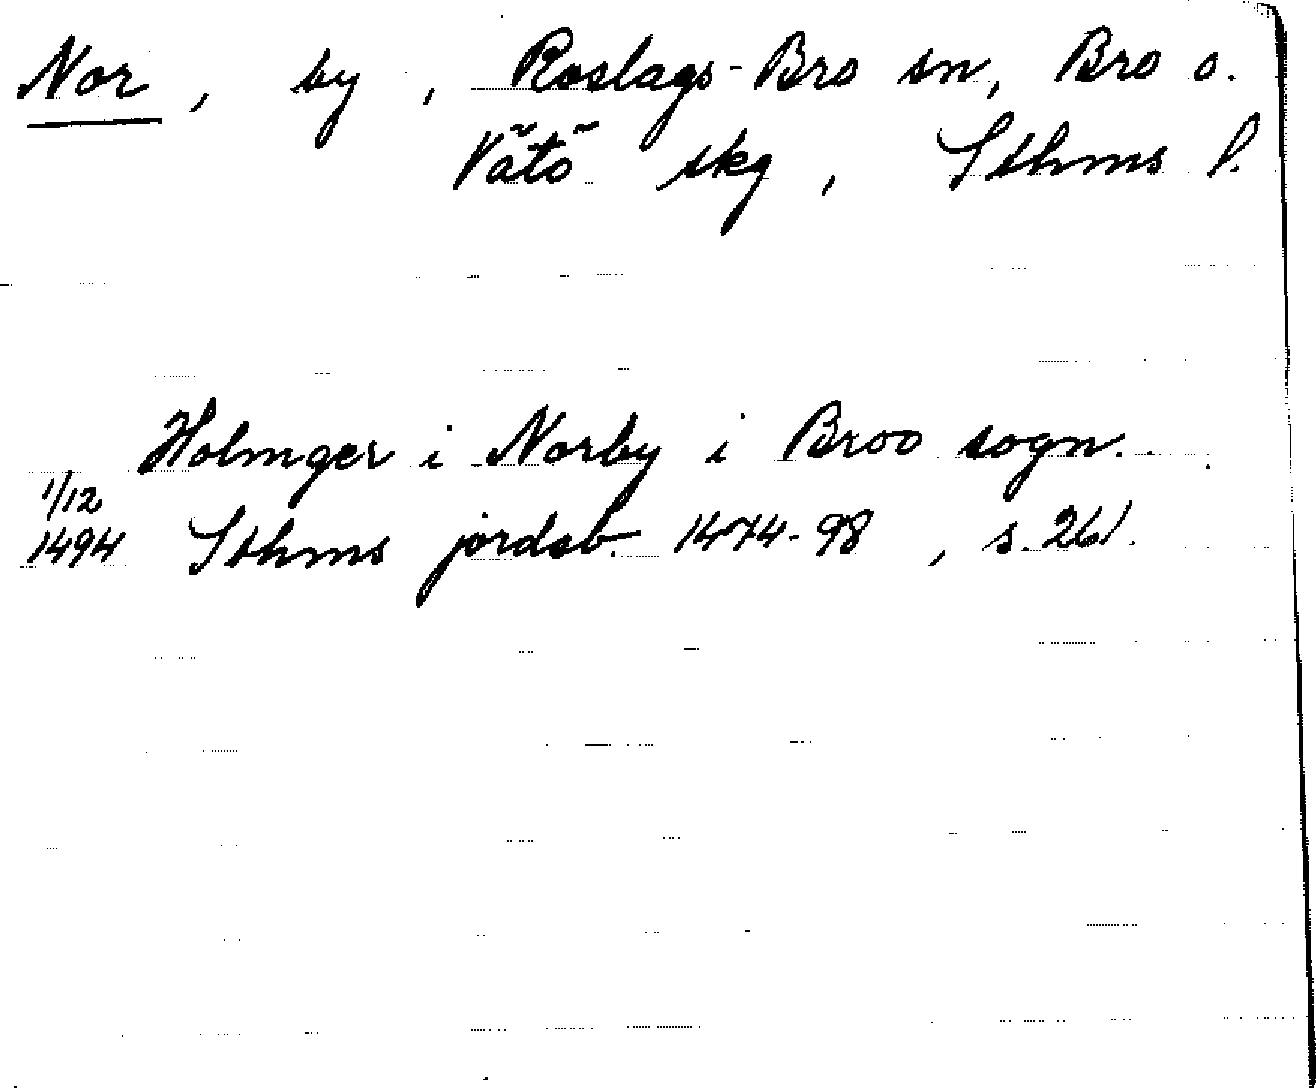 Nor, by, Roslags-Bro sn, Bro o.
Vätö skg, Sthms l.
Holmger i Norby i Broo sogn.
1/12
1494 Sthms jordab. 1474-98, s. 261.